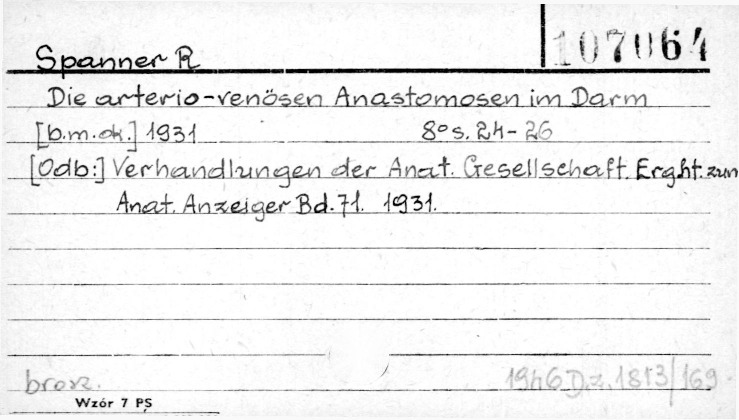 107064
Spanner R
Die arterio-venösen Anastomosen im Darm
[b.m.dr.] 1931 8° s. 24-26
[Odb:] Verhandlungen der Anat. Gesellschaft. Erght. zum
Anat. Anzeiger Bd. 71. 1931.
brosz. 1946 Dz. 1813/169
Wzór 7 PŚ